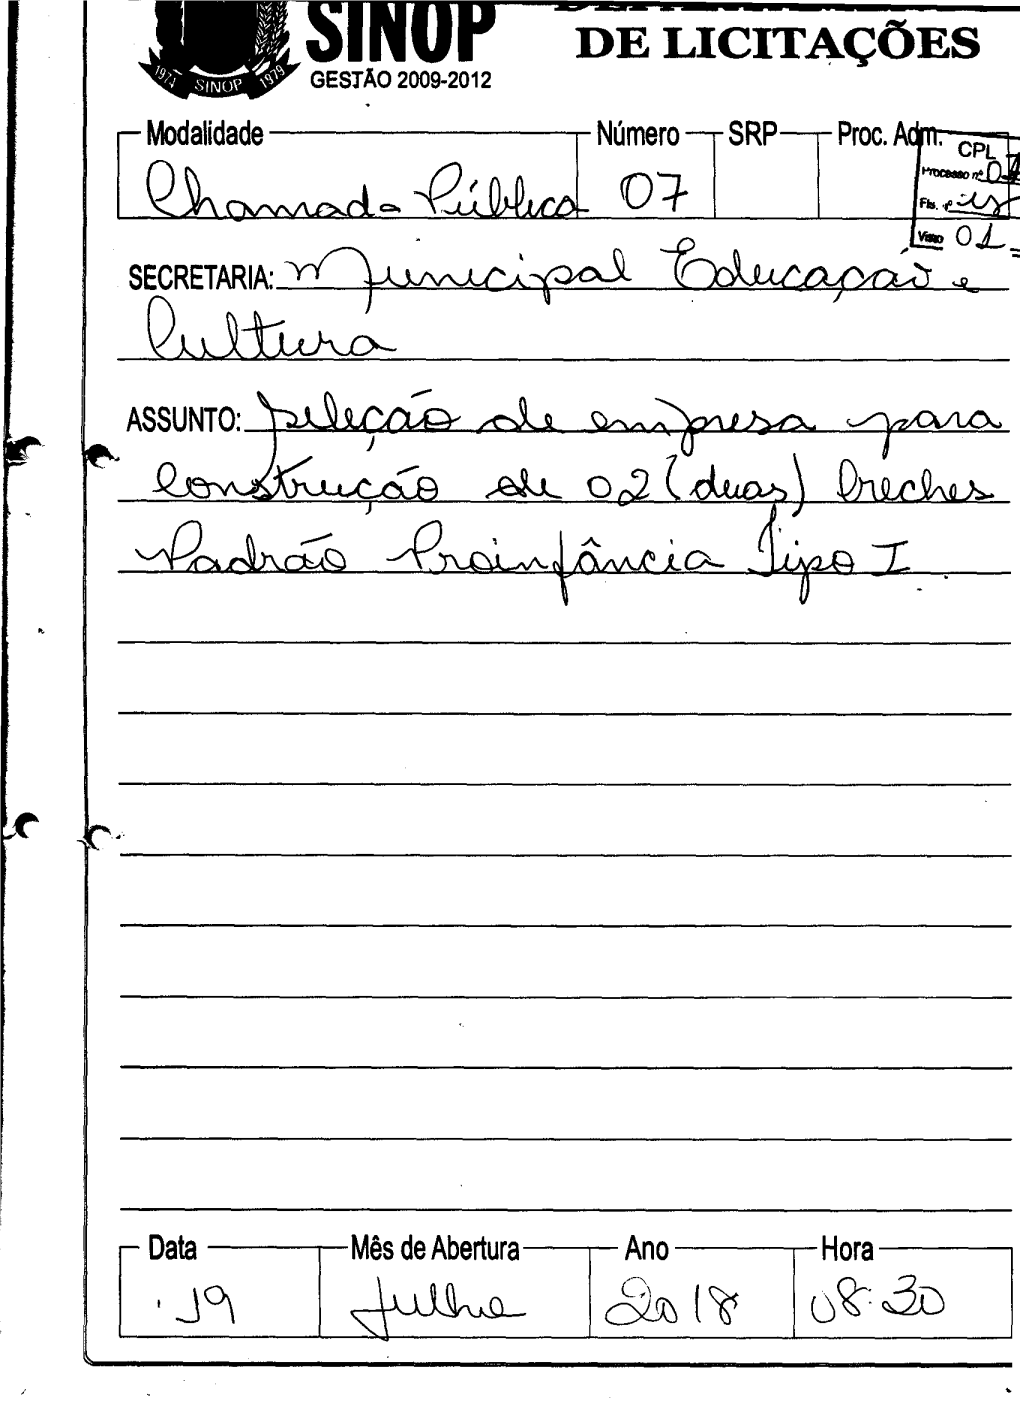 SINOP
DE LICITAÇÕES
GESTÃO 2009-2012
1974 SINOP 1979
Modalidade Número SRP Proc. Adm.
Chamada Pública 07
CPL
Processo nº
Fls. nº
Visto 01
SECRETARIA: Municipal Educação e
Cultura
ASSUNTO: Seleção de empresa para
Construção de 02 (duas) Creches
Padrão Proinfância Tipo I
Data Mês de Abertura Ano Hora
19 Julho 2018 08:30